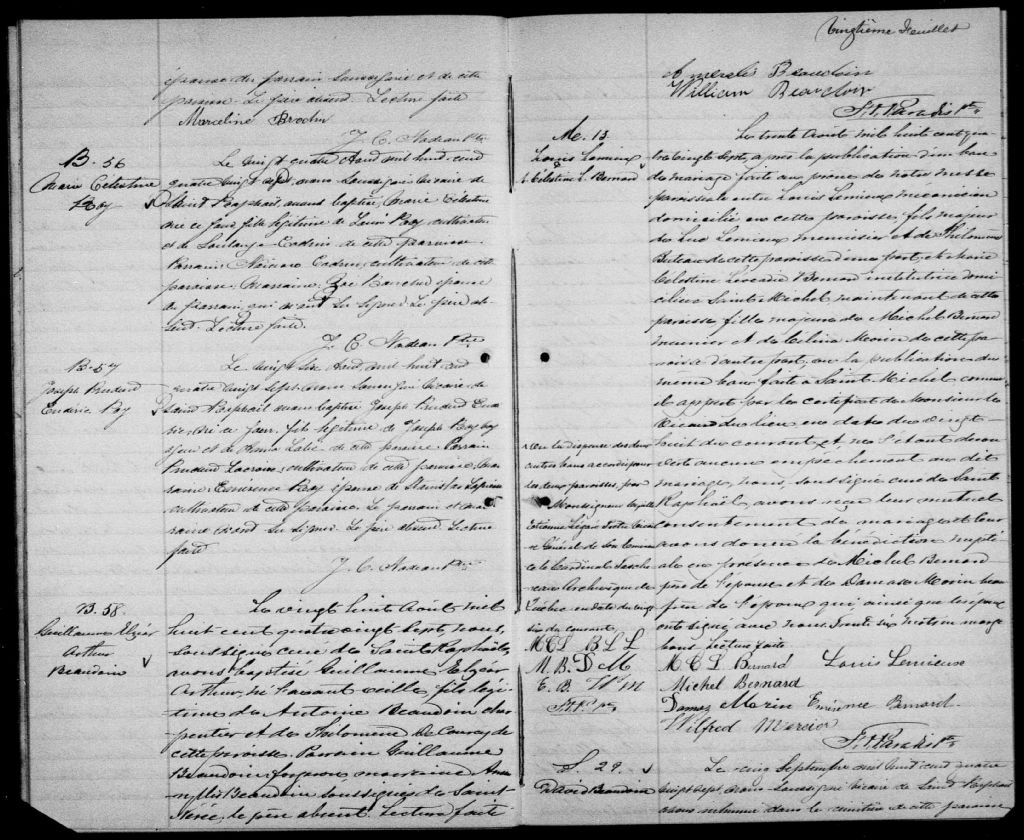 épouse du parrain soussignée et de cette
paroisse. Le père absent. Lecture faite
Marceline Brochu
J. C. Nadeau Ptre
B. 56
Marie Célestine
Roy
Le vingt quatre Août mil huit cent
quatre vingt sept, nous soussigné vicaire de
Saint Raphaël, avons baptisé, Marie Célestine
née ce jour fille légitime de Louis Roy cultivateur
et de Soulange Cadrin de cette paroisse.
Parrain Cadrin, cultivateur de cette
paroisse, Marraine, Zoé épouse
du parrain qui n'ont su signer. Le père ab-
sent. Lecture faite.
J. C. Nadeau Ptre
B. 57
Joseph Prudent
Roy
Le vingt six Août mil huit cent
quatre vingt sept nous soussigné vicaire de
Saint Raphaël avons baptisé Joseph Prudent
né ce jour, fils légitime de Joseph Roy
et de de cette paroisse. Parrain
Prudent Lacroix, cultivateur de cette paroisse, mar-
raine Roy épouse de Stanislas
cultivateur de cette paroisse. Le parrain et mar-
raine n'ont su signer. Le père absent. Lecture
faite
J. C. Nadeau Ptre
B. 58.
Guillaume Elzéar
Arthur
Beaudoin
Le vingt huit Août mil
huit cent quatre vingt sept, nous,
soussigné curé de Saint Raphaël,
avons baptisé Guillaume Elzéar
Arthur, né l'avant veille, fils légi-
time de Antoine Beaudoin char-
pentier et de Philomène de
cette paroisse. Parrain Guillaume
Beaudoin forgeron, marraine Ame-
rylis Beaudoin soussignés de Saint
Nérée, le père absent. Lecture faite
Vingtième Feuillet
Amerylis Beaudoin
William Beaudoin
F. X. Paradis Ptre
M. 13
Louis Lemieux
& Célestine L. Bernard
Le trente Août mil huit cent qua-
tre vingt sept, après la publication d'un ban
de mariage faite au prône de notre messe
paroissiale entre Louis Lemieux menuisier
domicilié en cette paroisse, fils majeur
de Luc Lemieux menuisier et de Philomène
Buteau de cette paroisse d'une part, et Marie
Célestine Léocadie Bernard institutrice domi-
ciliée Saint Michel maintenant de cette
paroisse, fille majeure de Michel Bernard
meunier et de Célina Morin de cette pa-
roisse d'autre part, vu la publication du
même ban faite à Saint Michel comme
il appert par le certificat de Monsieur le
Vicaire du lieu en date du vingt
huit du courant et ne s'étant décou-
vert aucun empêchement au dit
mariage, nous, soussigné curé de Saint
Raphaël, avons reçu leur mutuel
consentement de mariage et leur
avons donné la bénédiction nupti-
ale en présence de Michel Bernard
père de l'épouse et de Damase Morin beau
père de l'époux qui, ainsi que les époux
ont signé avec nous. Trente six
bons. Lecture faite
M C L Bernard Louis Lemieux
Michel Bernard
Damas Morin Bernard
Wilfred Mercier
F. X. Paradis Ptre
vu la dispense des deux
autres bans accordée pour
les deux paroisses, par
Monseigneur Cyrille
Etienne Légaré Vicai-
re Général de Son Eminen-
ce le Cardinal Tasche-
reau Archevêque de
Québec en date du vingt
six du courant,
M C L B L L
M. B. D M
E. B. W m
F. X. P. Ptre
S. 29.
David Beaudoin
Le cinq Septembre mil huit cent quatre
vingt sept, nous soussigné vicaire de Saint Raphaël
avons inhumé dans le cimetière de cette paroisse